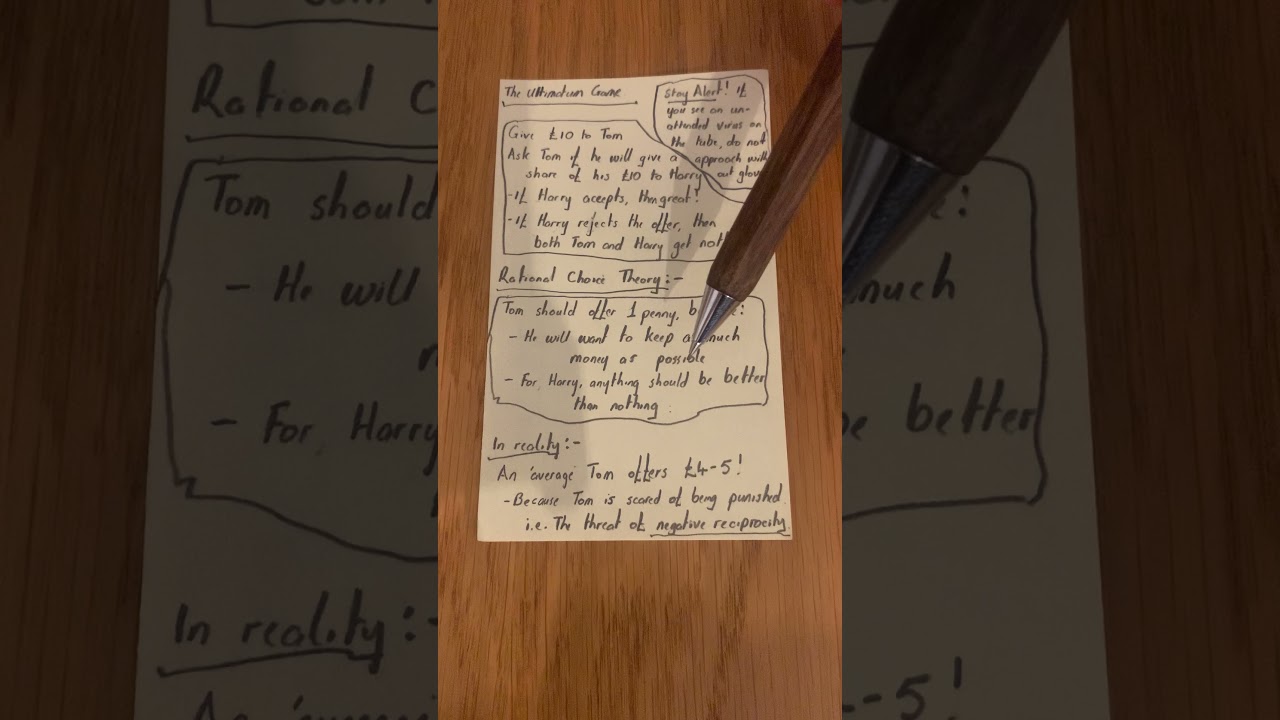 The Ultimatum Game
Stay Alert! If
you see an un-
attended virus on
the tube, do not
approach with
out glov
Give £10 to Tom
Ask Tom if he will give a
share of his £10 to Harry
- If Harry accepts, then great!
- If Harry rejects the offer, then
both Tom and Harry get not
Rational Choice Theory:-
Tom should offer 1 penny, b e:
- He will want to keep a much
money as possible
- For Harry, anything should be better
than nothing.
In reality:-
An 'average' Tom offers £4-5!
- Because Tom is scared of being punished
i.e. The threat of negative reciprocity.
Rational C
Tom should
- He will
- For Harry
In reality:-
e:
much
be better
-5!